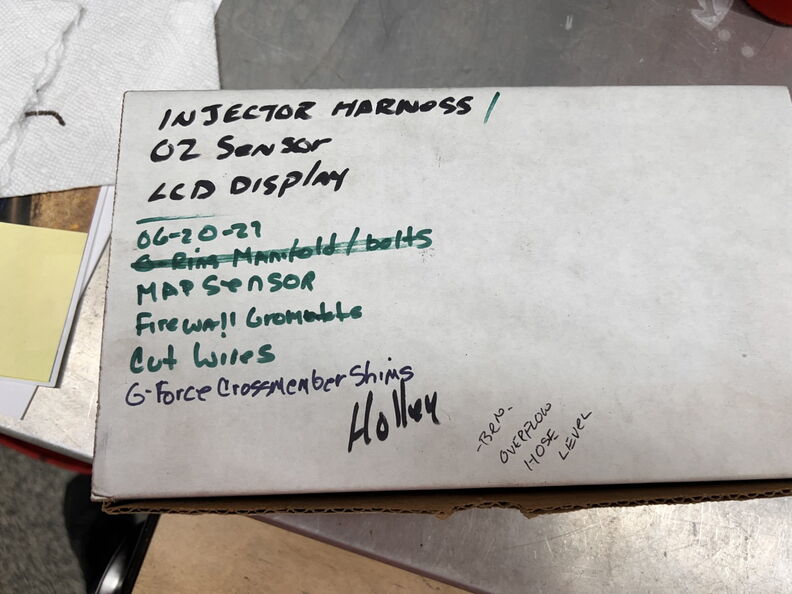 INJECTOR HARNOSS /
O2 Sensor
LCD DISPlAY
06-20-21
O-Ring Manifold/bolts
MAP SENSOR
Firewall Grommets
Cut Wires
G-Force Crossmember Shims
Holley
-BRN-
OVERFLOW
HOSE
LEVEL